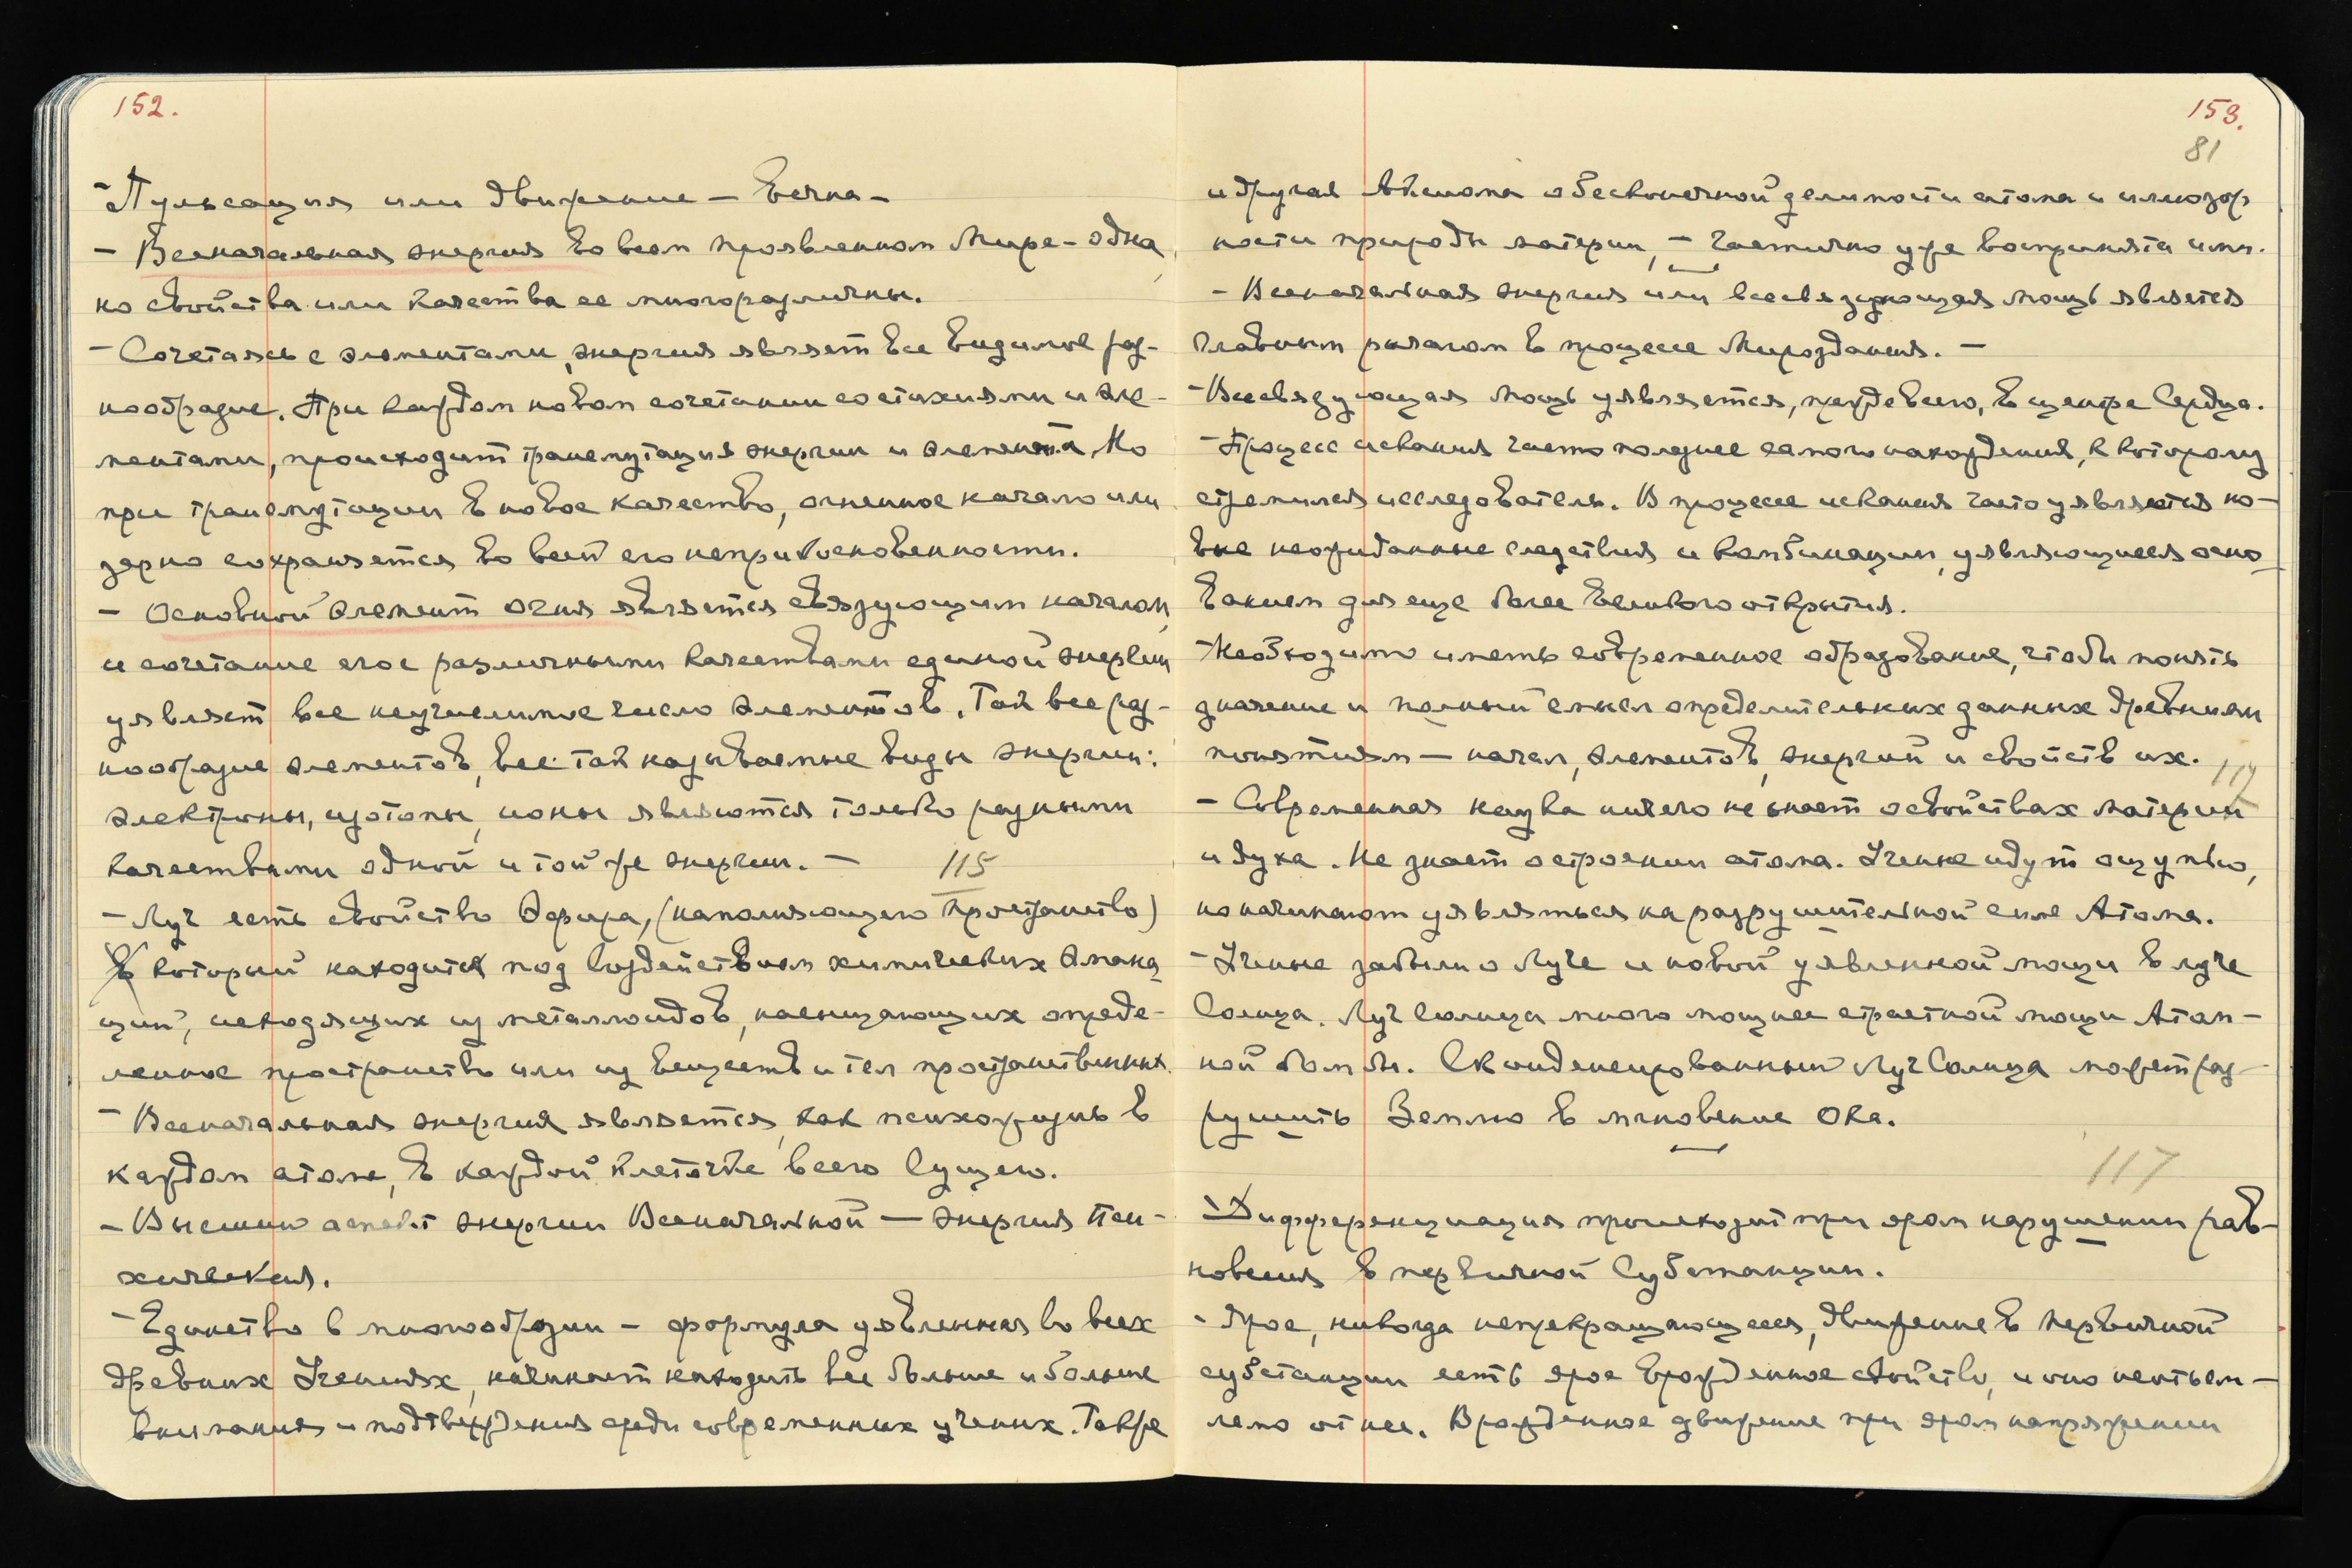 152.
- Пульсация или движение – Вечна –
- Всеначальная энергия во всем проявленном Мире – одна,
но свойства или качества ее многоразличны.
- Сочетаясь с элементами, энергия являет все видимое раз-
нообразие. При каждом новом сочетании со стихиями и эле-
ментами, происходит трансмутация энергии и элемента. Но
при трансмутации в новое качество, огненное начало или
зерно сохраняется во всей его неприкосновенности.
- Основной элемент огня является связующим началом,
и сочетание его с различными качествами единой энергии
уявляет все неучислимое число элементов. Так все раз-
нообразие элементов, все так называемые виды энергии:
электроны, изотопы, ионы являются только разными
качествами одной и той же энергии. – 115
- Луч есть свойство Эфира, (наполняющего пространство)
который находится под воздействием химических эмана-
ций, исходящих из металлоидов, насыщающих опреде-
ленное пространство или из веществ и тел пространственных.
- Всеначальная энергия является, как психожизнь в
каждом атоме, в каждой клеточке всего Сущего.
- Высший аспект энергии Всеначальной – энергия Пси-
хическая.
- Единство в многообразии – формула уявленная во всех
древних Учениях, начинает находить все больше и больше
внимания и подтверждения среди современных ученых. Также
153.
81
и другая Аксиома о бесконечной делимости атома и иллюзор
ности природы материи, – частично уже воспринята ими.
- Всеначальная энергия или всесвязующая мощь является
главным рычагом в процессе Мироздания. –
- Всесвязующая мощь уявляется, прежде всего, в центре Сердца.
- Процесс искания часто полезнее самого нахождения, к которому
стремился исследователь. В процессе искания часто уявляются но-
вые неожиданные следствия и комбинации, уявляющиеся осно-
ванием для еще более великого открытия.
- Необходимо иметь современное образование, чтобы понять
значение и полный смысл определительных данных древним
понятиям – начал, элементов, энергий и свойств их.
117
- Современная наука ничего не знает о свойствах материи
и духа. Не знает о строении атома. Ученые идут ощупью,
но начинают уявляться на разрушительной силе Атома.
- Ученые забыли о Луче и новой уявленной мощи в луче
Солнца. Луч Солнца много мощнее страстной мощи Атом-
ной бомбы. Сконденсированный Луч Солнца может раз-
рушить Землю в мгновение ока.
117
- Дифференциация происходит при яром нарушении рав-
новесия в первичной Субстанции.
- Ярое, никогда непрекращающееся, движение в первичной
субстанции есть ярое врожденное свойство, и оно неотъем-
лемо от нее. Врожденное движение при яром напряжении